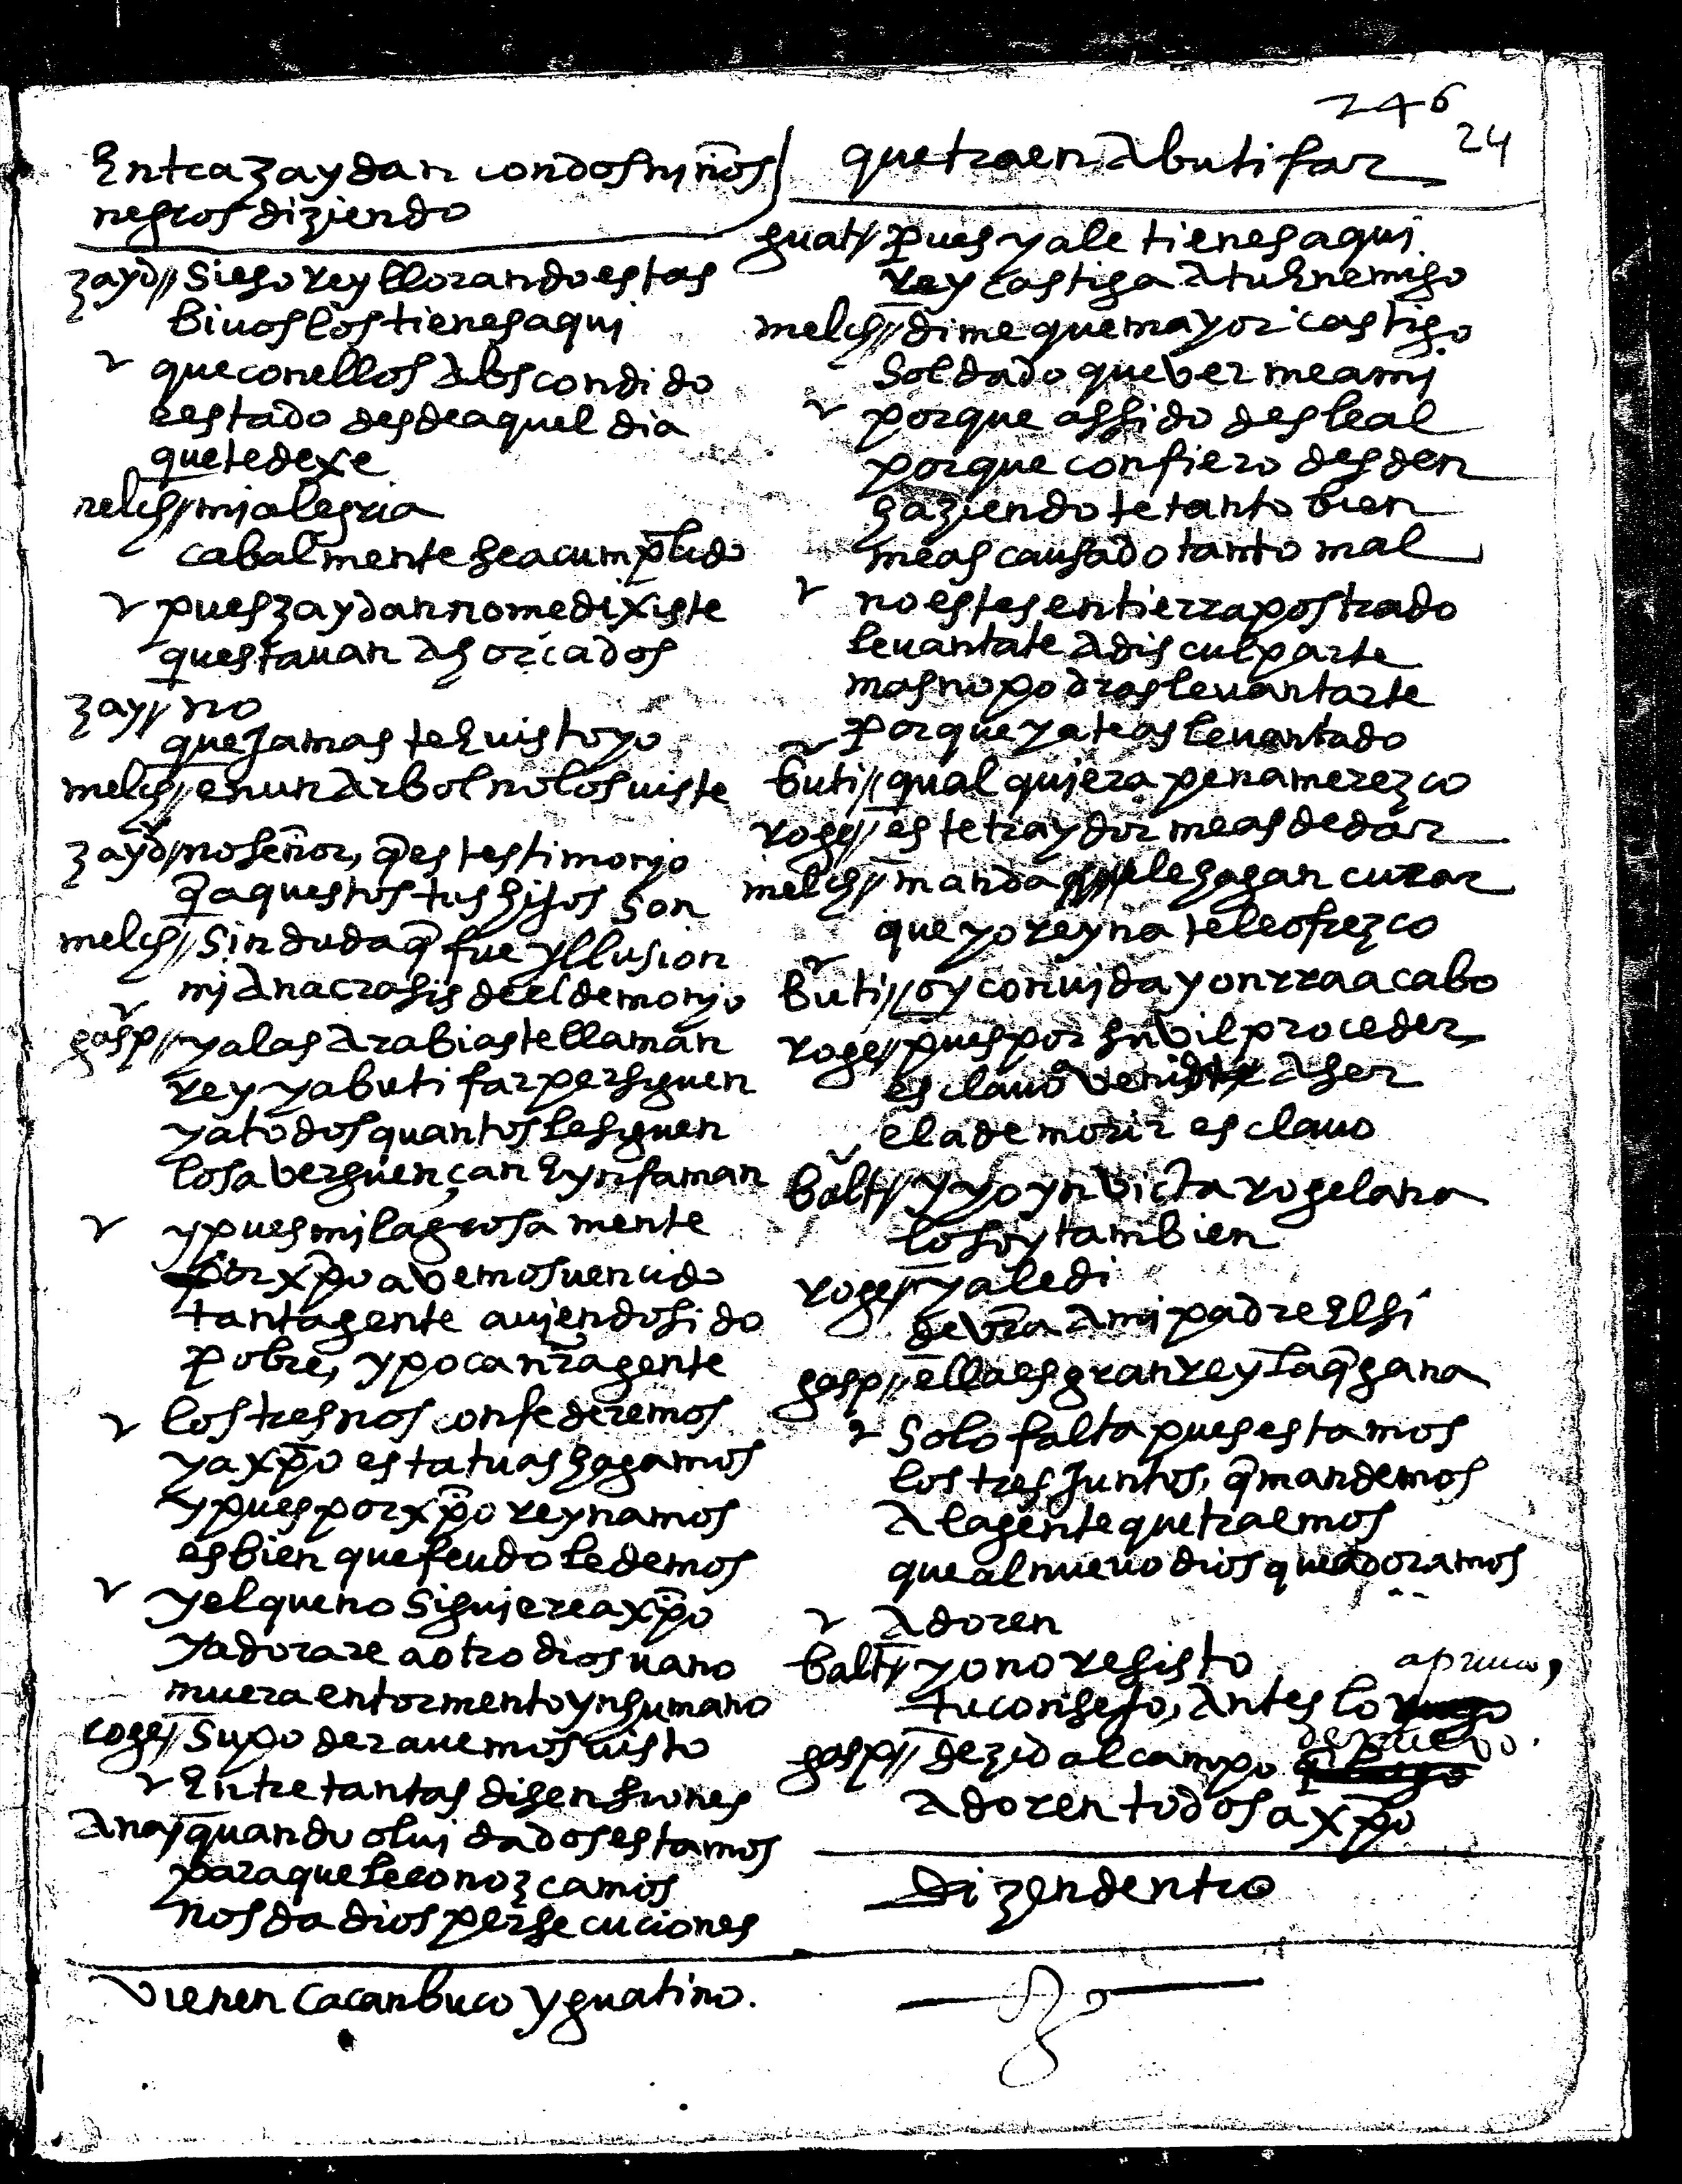 246
24
Entra zaydan con dos niños
negros diziendo
zayd// Siego rey llorando estas
biuos los tienes aqui
que con ellos Abscondido
e estado desde aquel dia
que te dexe
melch// mi alegria
cabalmente se a cumplido
pues zaydan no me dixiste
questauan Ahorcados
zay// no
que jamas te E uisto yo
melch// en un Arbol no los uiste
zayd// no señor, q̄ es testimonio
q̄ aquestos tus hijos son
melch// sin duda q̄ fue yllusion
mi Anacrasis de el demonio
gasp// ya las Arabias te llaman
rey y a butifar persiguen
y a todos quantos le siguen
los aberguençan E ynfaman
y pues milagrosamente
por xp̄o abemos uencido
tanta gente auiendo sido
pobre, y poca nr̄a gente
los tres nos confederemos
y a xp̄o estatuas hagamos
y pues por xp̄o reynamos
es bien que feudo le demos
y el que no siguiere a xp̄o
y adorare a otro dios uano
muera en tormento ynhumano
roge// Su poder auemos uisto
Entre tantas disensiones
Ana// quando oluidados estamos
para que le conozcamos
nos da dios persecuciones
Vienen Cacanbuco y guatino.
que traen A butifar
guat// pues ya le tienes aqui
rey castiga A tu Enemigo
melch// dime que mayor castigo
Soldado que berme a mi
porque as sido desleal
porque con fiero desden
haziendote tanto bien
me as causado tanto mal
no estes en tierra postrado
leuantate A disculparte
mas no podras leuantarte
porque ya te as leuantado
buti// qualquiera pena merezco
roge// este traydor me as de dar
melch// manda que le hagan curar
que yo reyna te le ofrezco
buti// oy con uida y onrra acabo
roge// pues por su bil proceder
esclauo A ser
el a de morir esclauo
balt// y yo ynbicta rogelana
lo soy tambien
roge// ya le di
de vr̄a A mi padre El si
gasp// ella es gran rey la q̄ gana
Solo falta pues estamos
los tres Juntos, q̄ mandemos
A la gente que traemos
que al nueuo dios que adoramos
Adoren
balt// yo no resisto
apruuo,
tu consejo, Antes lo
de nuebo.
gasp// dezid al campo
Adoren todos a xp̄o
Dizen dentro